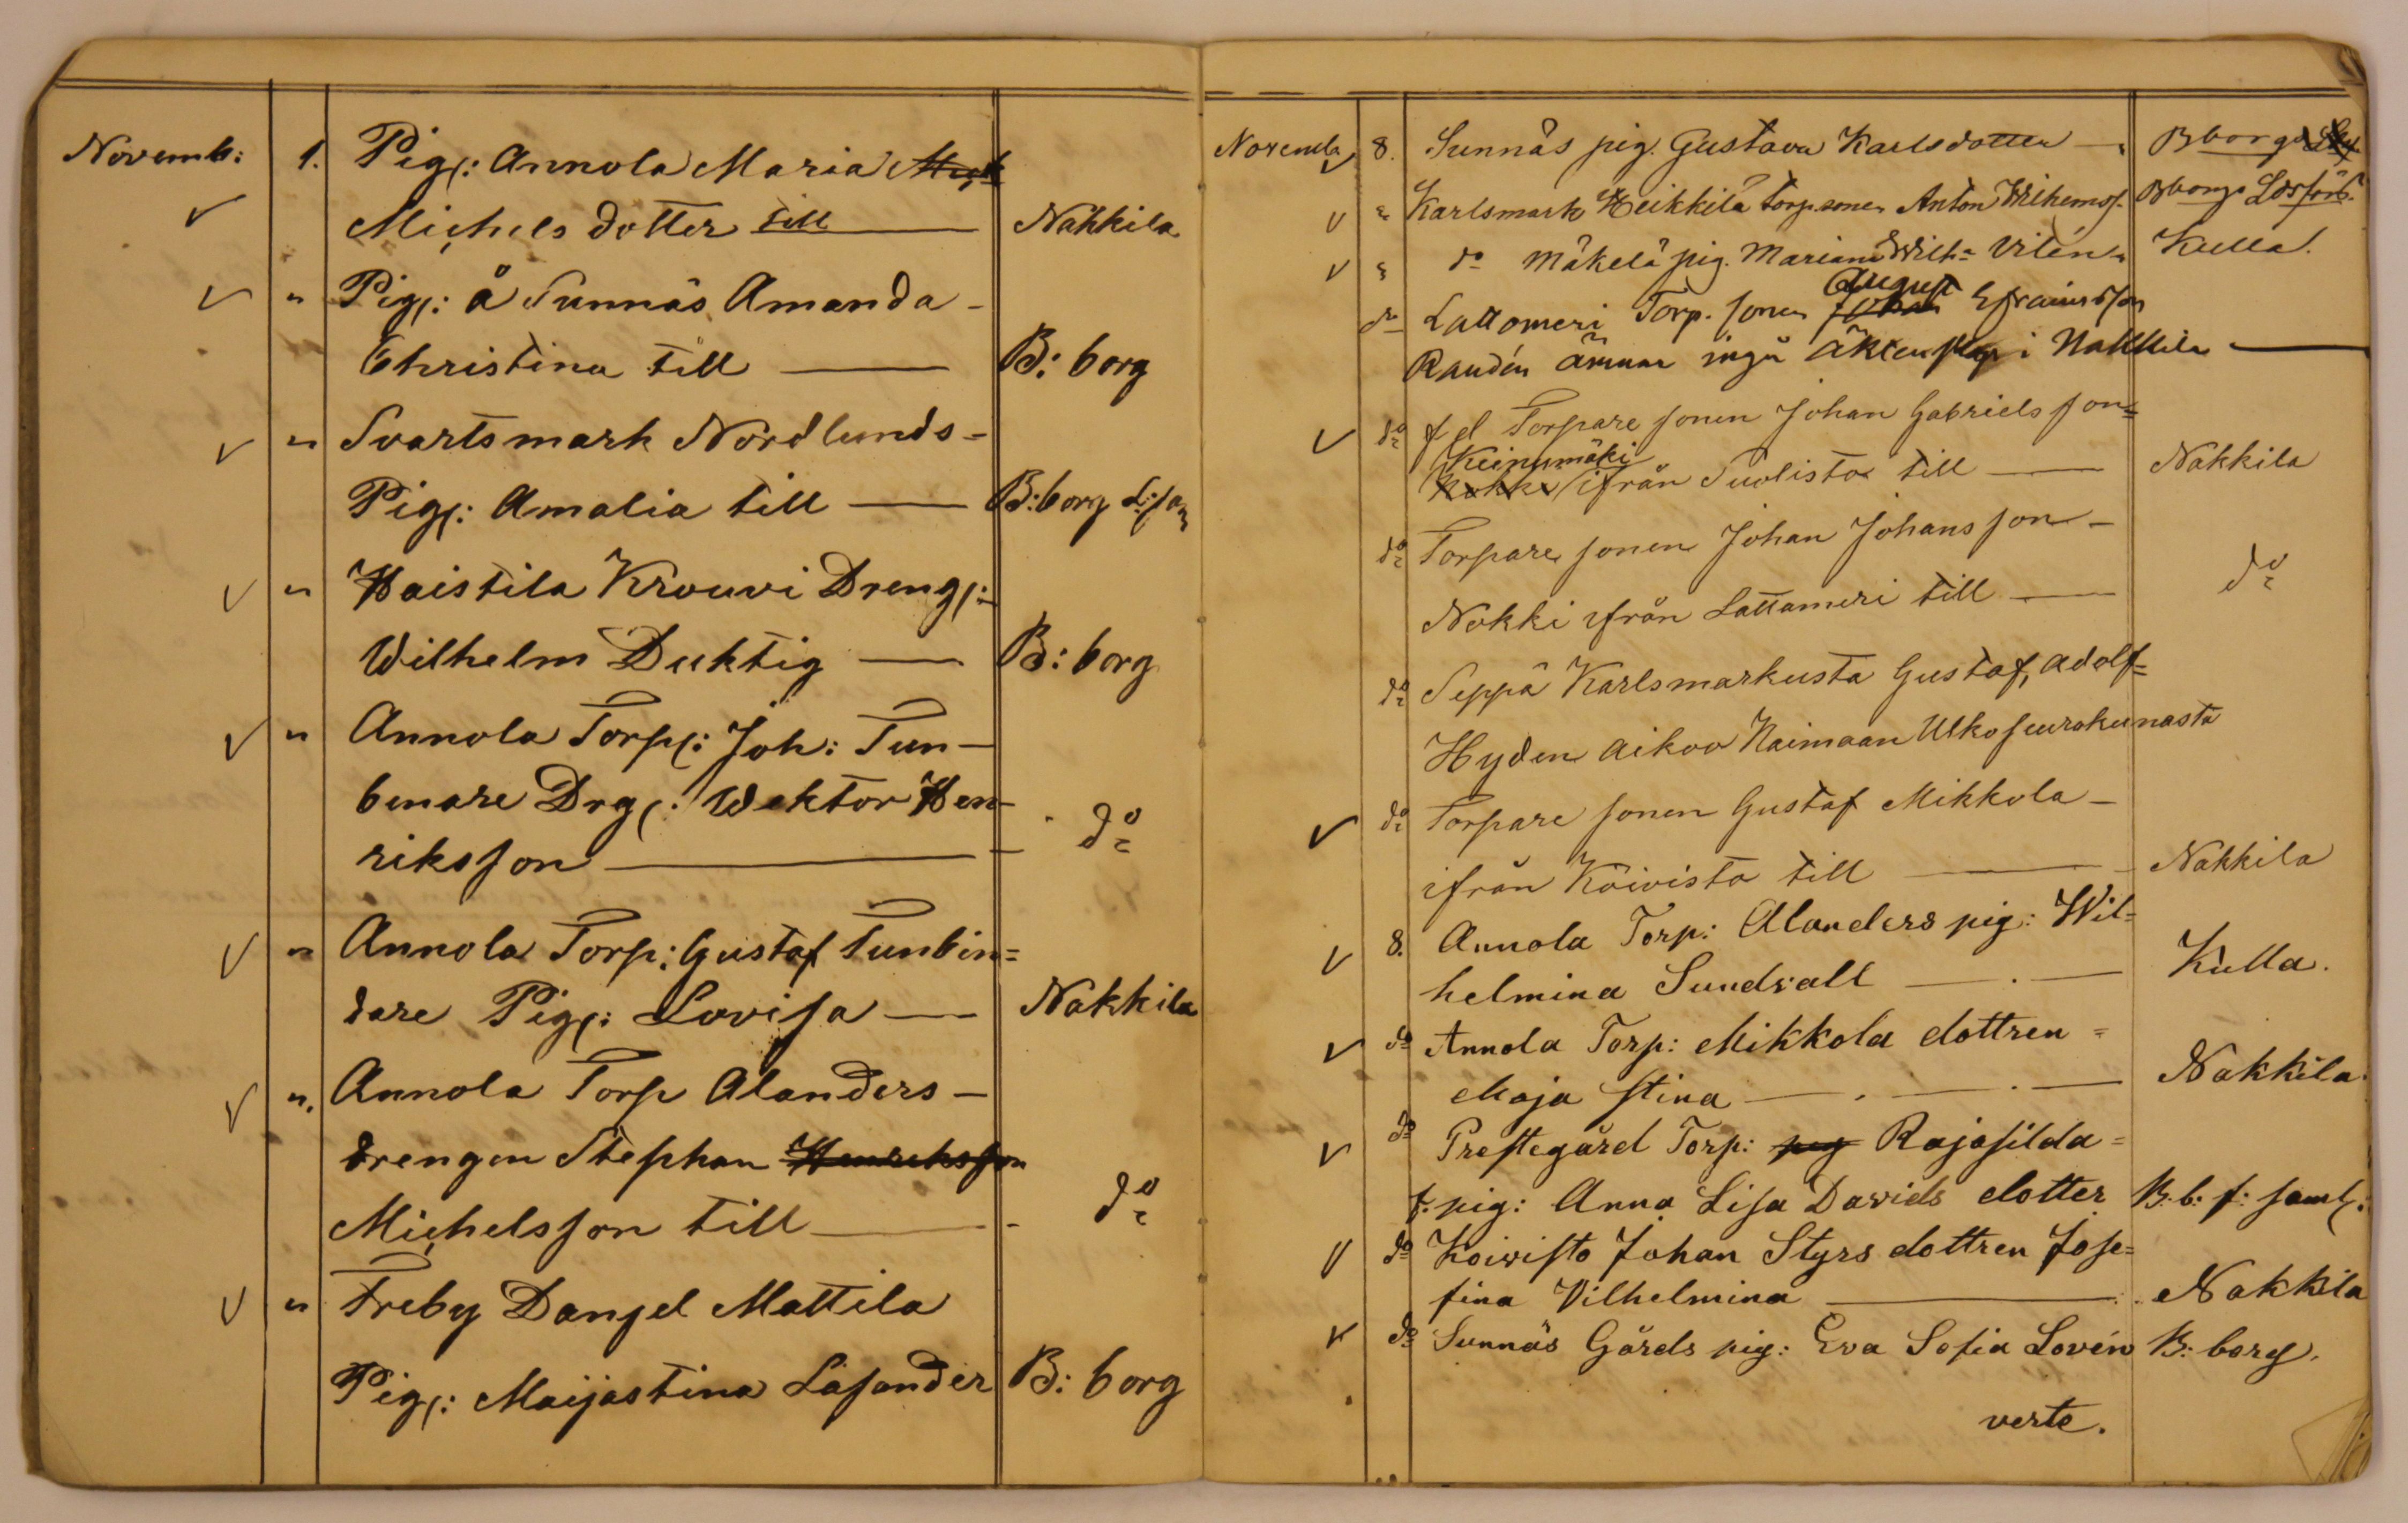 Novemb: 1. Pig: Annola Maria
Michels dotter till — Nakkila
" Pig: å Sunnäs Amanda -
Christina till — B: borg
" Svartsmark Nordlunds =
Pig: Amalia till — B: borg
" Haistila Krouvi Dreng:
Wilhelm Duktig — B: borg
" Annola Torp: Joh: Tun-
benare Drg: Wektor Hen-
riksson — do
" Annola Torp: Gustaf Tunbin=
dare Pig: Lovisa — Nakkila
" Annola Torp Alanders —
drengen Stephan Henriksson
Michelsson till — do
" Freby Danjel Mattila
Pig: Maijastina Lasander B: borg
Novemb 8. Sunnäs pig. Gustava Karlsdotter — Bborgs
" Karlsmark Heikkilä torp.sonen Anton Wilhemss. Bborgs Ldsförs.
" do Mäkelä pig. Mariana Wilh= Vilén Kulla.
August
do Lattomeri Torp. sonen Johan Efraimsson
Raudén ämnar ingå äktenskap i Nakkila —
do f d Torpare sonen Johan Gabrielsson=
Keinumäki
Nokki ifrån Suolisto till — Nakkila
do Torpare sonen Johan Johansson —
Nokki ifrån Lattameri till — do
do Seppä Karlsmarkusta Gustaf, Adolf=
Hyden aikoo Naimaan Ulkoseurakunasta
do Torpare sonen Gustaf Mikkola —
ifrån Koivisto till — Nakkila
8. Annola Torp: Alanders pig: Wil=
helmina Sundvall — . — Kulla.
do Annola Torp: Mikkola dottren =
Maja Stina — . — . — Nakkila.
do Prestegård Torp: pig Rajasilda =
f. pig: Anna Lisa Davids dotter B: b: f: saml:
do Koivisto Johan Styrs dottren Jose=
fina Vilhelmina — Nakkila
do Sunnäs Gårds pig: Eva Sofia Lovén B: borg.
verte.